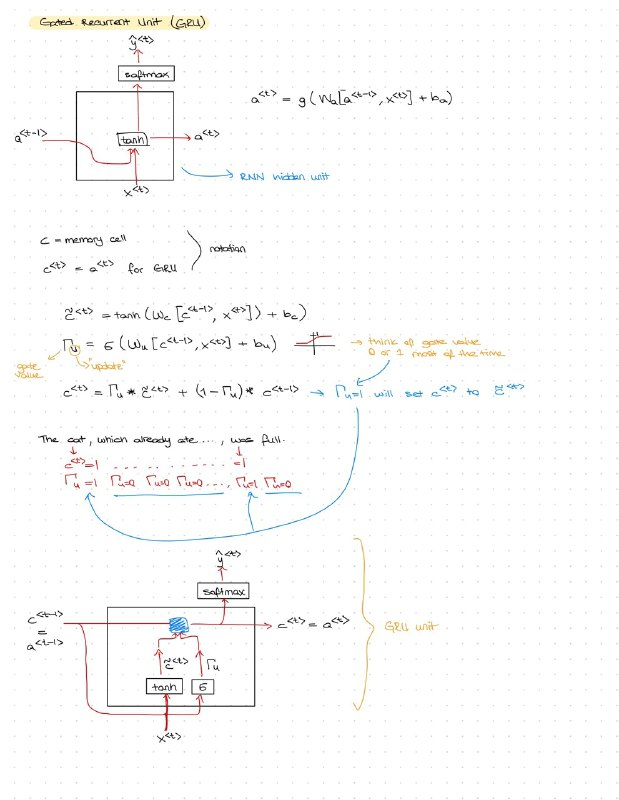 Gated Recurrent Unit (GRU)
ŷ<t>
softmax
a<t> = g(Wa[a<t-1>, x<t>] + ba)
a<t-1>
tanh
a<t>
x<t>
RNN hidden unit
c = memory cell
c<t> = a<t> for GRU
notation
c̃<t> = tanh(Wc[c<t-1>, x<t>]) + bc)
Γu = σ(Wu[c<t-1>, x<t>] + bu)
→ think of gate value
0 or 1 most of the time
gate
value
"update"
c<t> = Γu * c̃<t> + (1-Γu) * c<t-1> → Γu=1 will set c<t> to c̃<t>
The cat, which already ate ...., was full.
c<t>=1 .. ........... =1
Γu=1 Γu=0 Γu=0 Γu=0...., Γu=1 Γu=0
ŷ<t>
softmax
c<t-1>
=
a<t-1>
c<t> = a<t>
GRU unit
c̃<t>
Γu
tanh
σ
x<t>